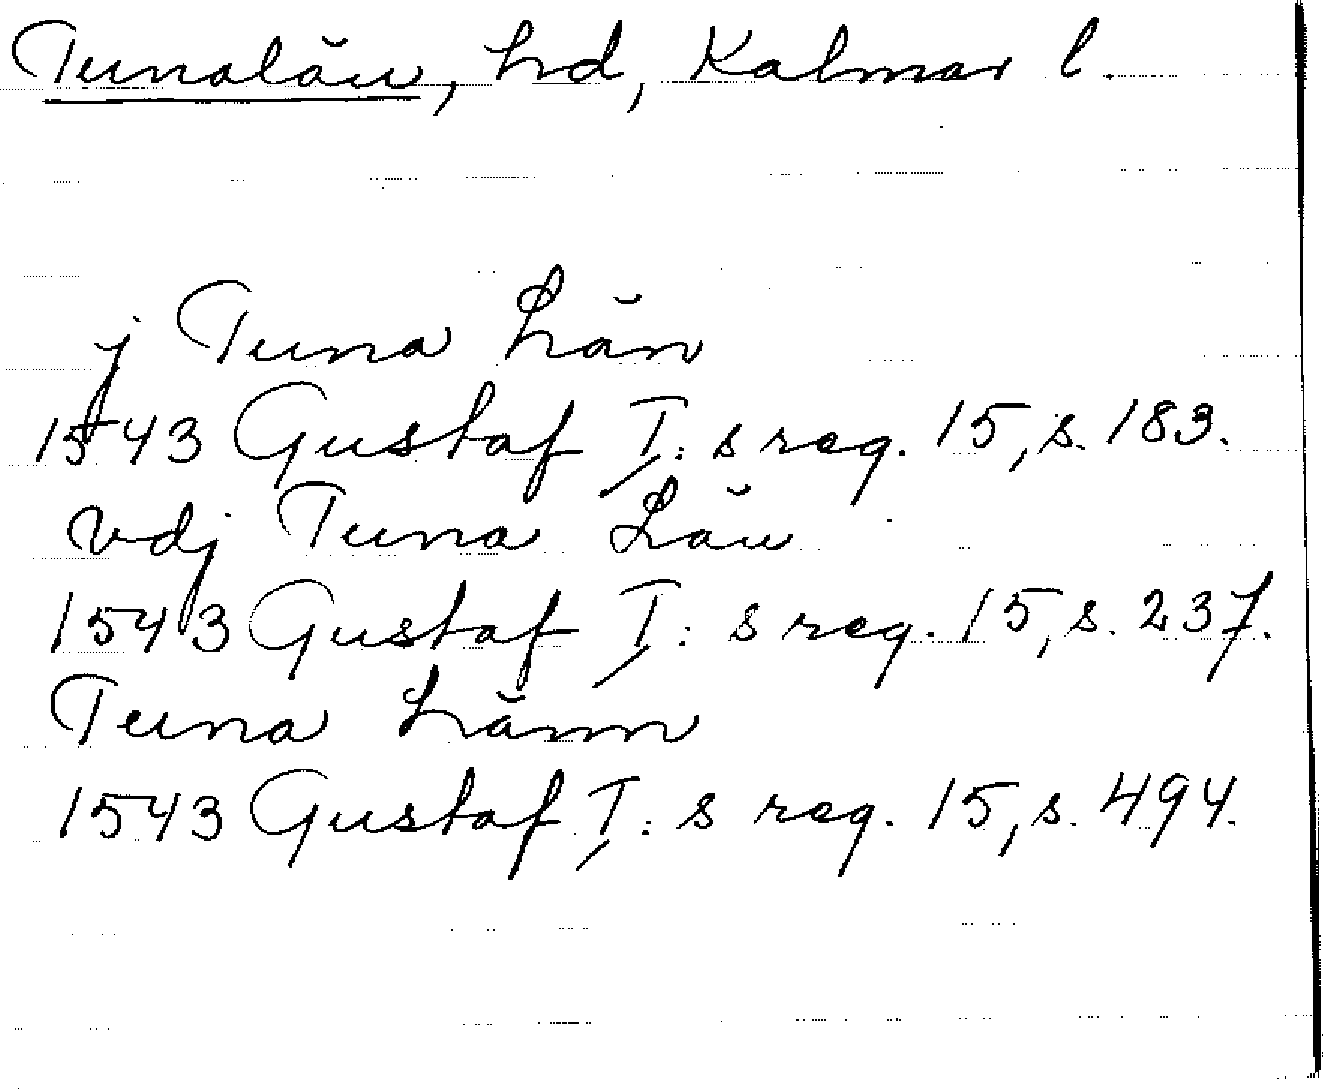 Tunalän, hd, Kalmar l.
j Tuna Län
1543 Gustaf I:s reg. 15, s. 183.
vdj Tuna Län
1543 Gustaf I:s reg. 15, s. 237.
Tuna Länn
1543 Gustaf I:s reg. 15, s. 494.